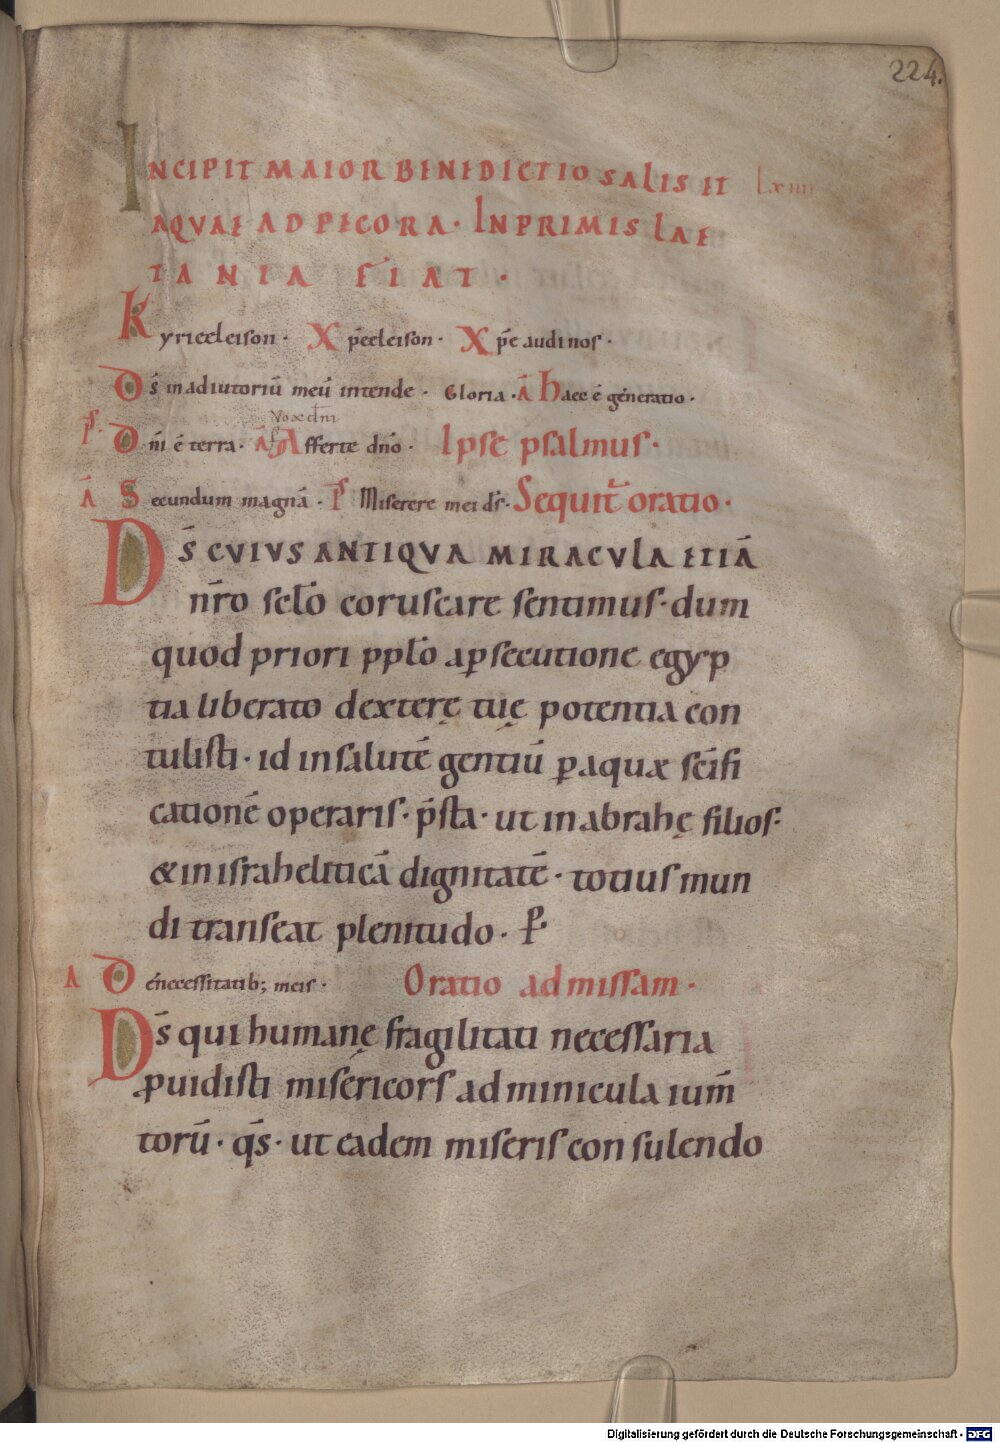 224.
INCIPIT MAIOR BENEDICTIO SALIS ET Lxiiii
AQVAE AD PECORA· INPRIMIS LAE
TANIA FIAT·
Kyrieeleison· Xp̄eeleison· Xp̄e audi nos·
Ds̄ in adiutoriū meū intende· Gloria· Ā Haec ē generatio·
Ps· Dn̄i ē terra· Ā Vox dn̄i Afferte dn̄o· Ipse psalmus·
Ā Secundum magnā· Ps Miserere mei ds̄· Sequit̄ oratio·
Ds̄ CVIVS ANTIQVA MIRACVLA ETIĀ
nr̄o sclo̅ coruscare sentimus· dum
quod priori pplo̅ aꝑsecutione egyp
tia liberato dexterę tuę potentia con
tulisti· id in salutē gentiū ꝑ aquæ sc̄ifi
cationē operaris· p̄sta· ut in abrahę filios·
& in israheliticā dignitatē· totius mun
di transeat plenitudo· P̲·
A De necessitatib; meis· Oratio ad missam·
Ds̄ qui humanę fragilitati necessaria
ꝓuidisti misericors adminicula ium̄
torū· qs̄· ut eadem miseris consulendo
Digitalisierung gefördert durch die Deutsche Forschungsgemeinschaft - DFG